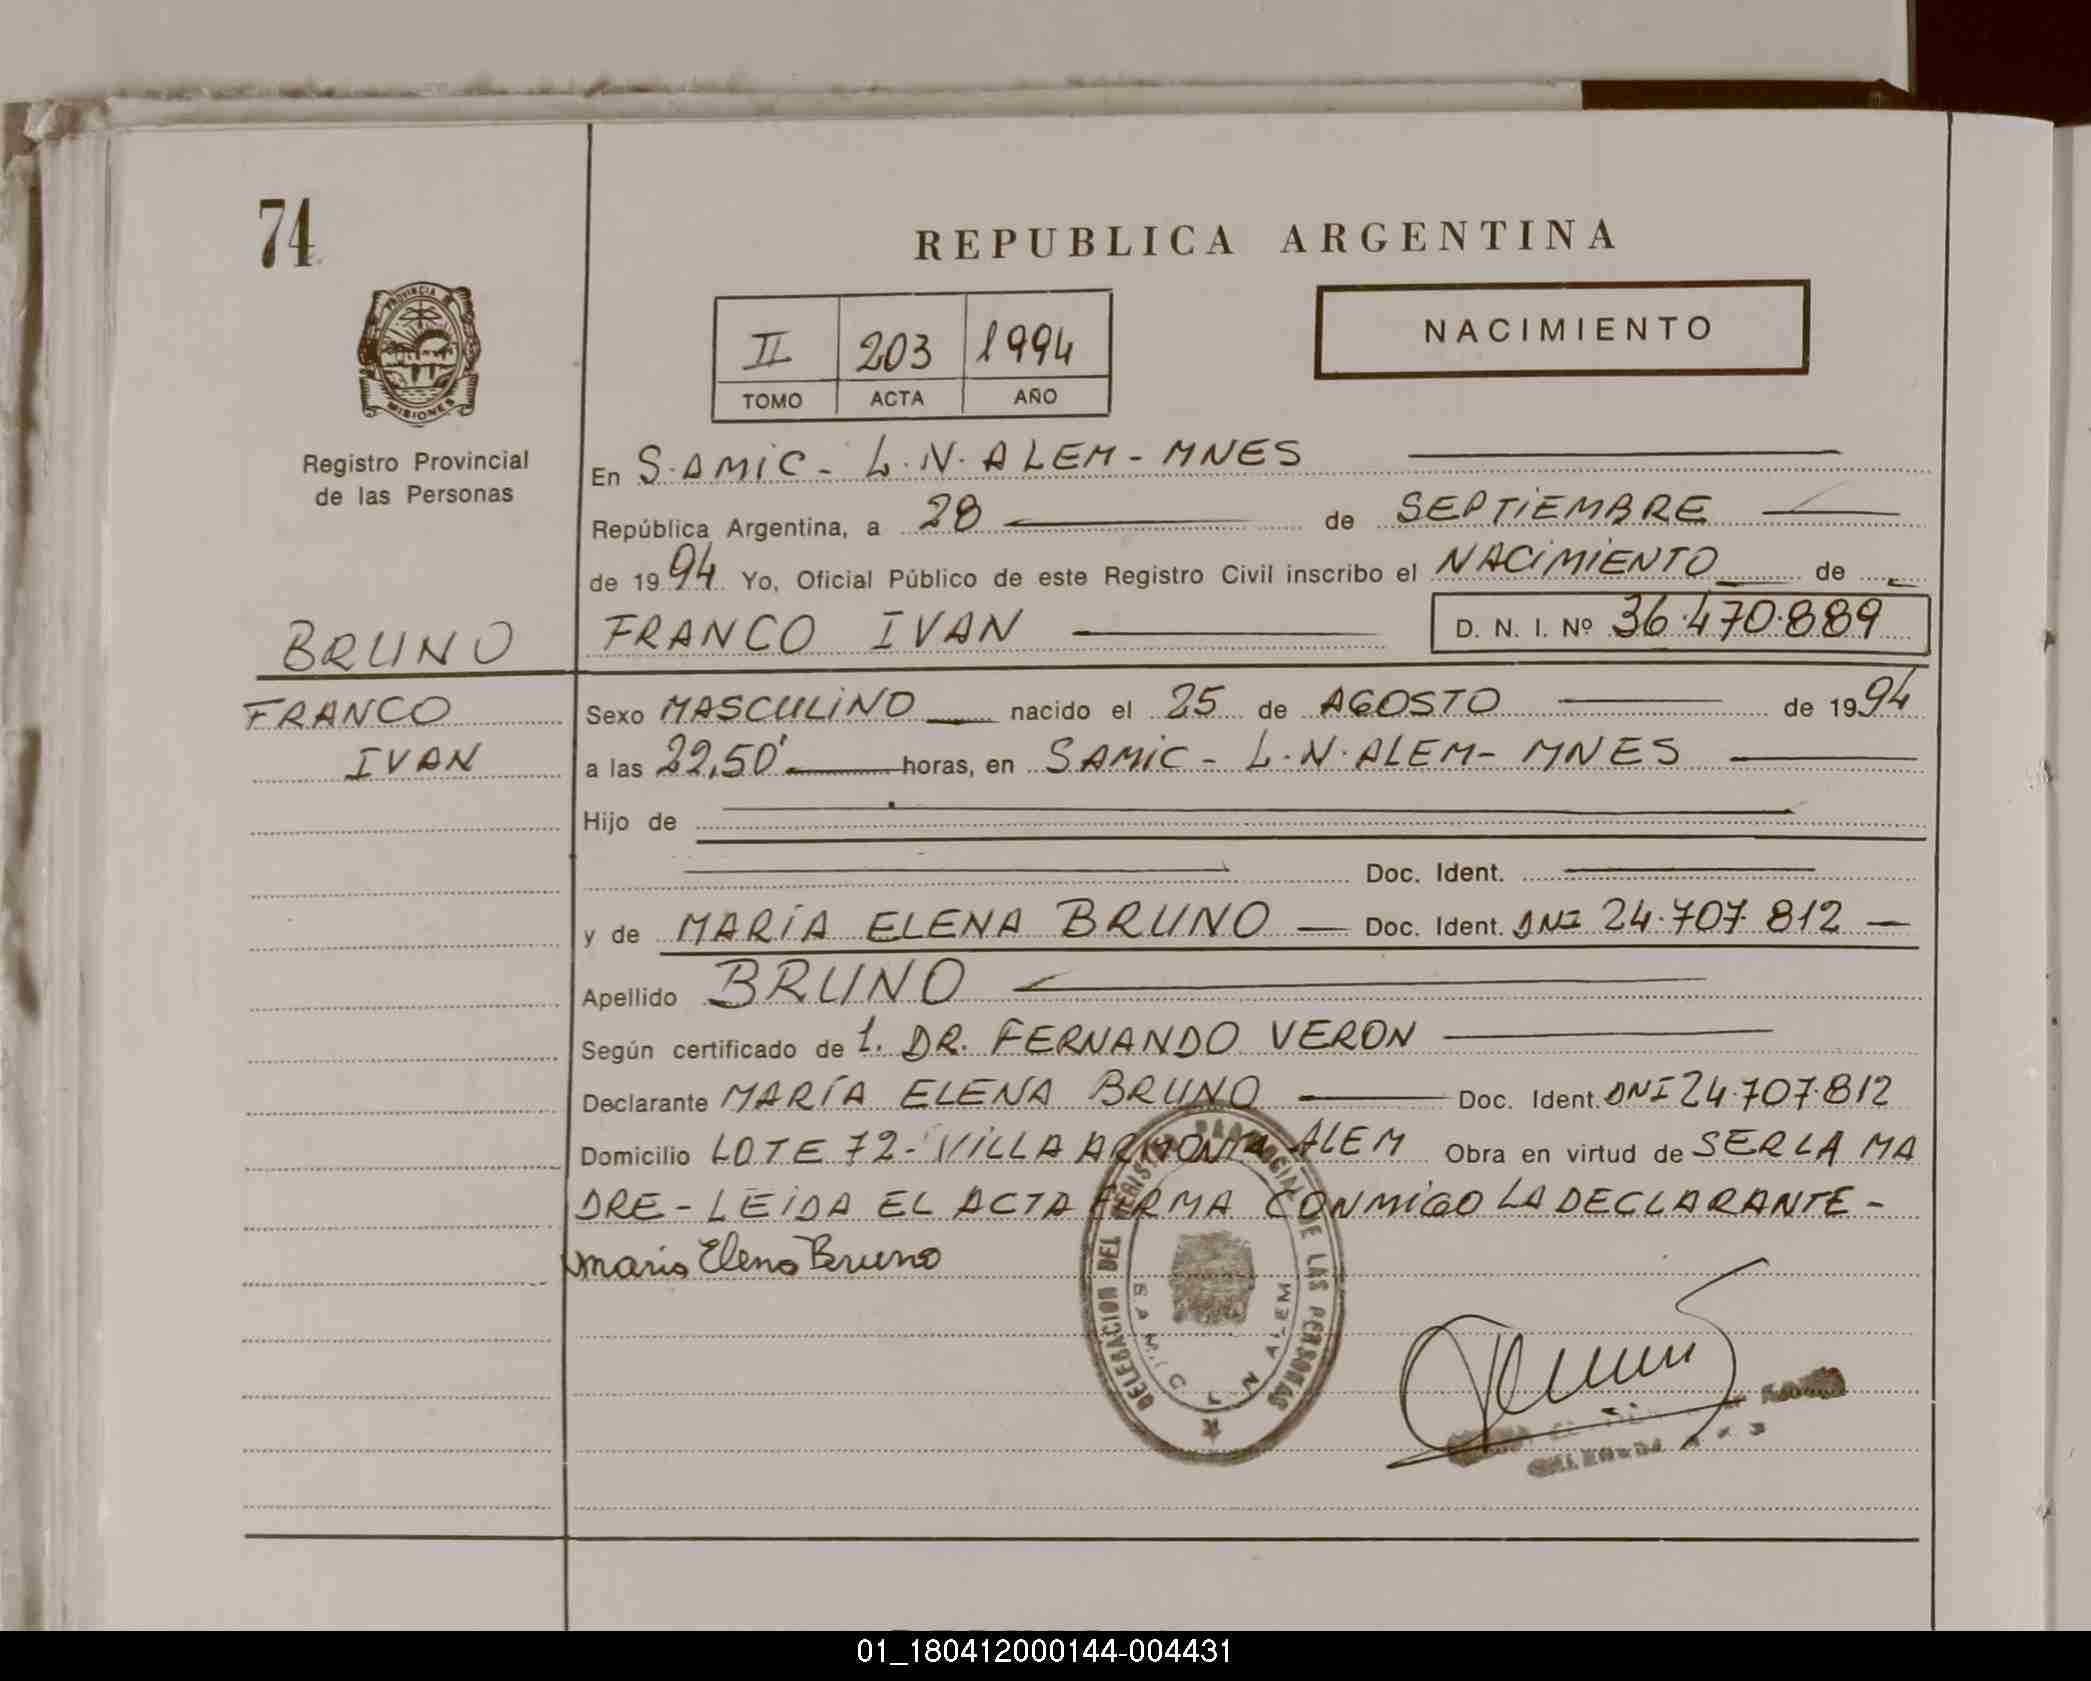 74
REPUBLICA ARGENTINA
PROVINCIA DE
MISIONES
II 203 1994
TOMO ACTA AÑO
NACIMIENTO
Registro Provincial
de las Personas
En S.AMIC - L.N.ALEM - MNES
República Argentina, a 28 de SEPTIEMBRE
de 1994 Yo, Oficial Público de este Registro Civil inscribo el NACIMIENTO de
BRUNO FRANCO IVAN D. N. I. Nº 36.470.889
FRANCO Sexo MASCULINO nacido el 25 de AGOSTO de 1994
IVAN a las 22,50' horas, en SAMIC - L.N.ALEM - MNES
Hijo de
Doc. Ident.
y de MARÍA ELENA BRUNO Doc. Ident. DNI 24.707.812
Apellido BRUNO
Según certificado de 1. DR. FERNANDO VERON
Declarante MARÍA ELENA BRUNO Doc. Ident. DNI 24.707.812
Domicilio LOTE 72 - VILLA ARMONIA ALEM Obra en virtud de SER LA MA
DRE - LEIDA EL ACTA FIRMA CONMIGO LA DECLARANTE -
Maria Elena Bruno
DELEGACION DEL REGISTRO PROVINCIAL DE LAS PERSONAS
SAMIC L N ALEM
01_180412000144-004431